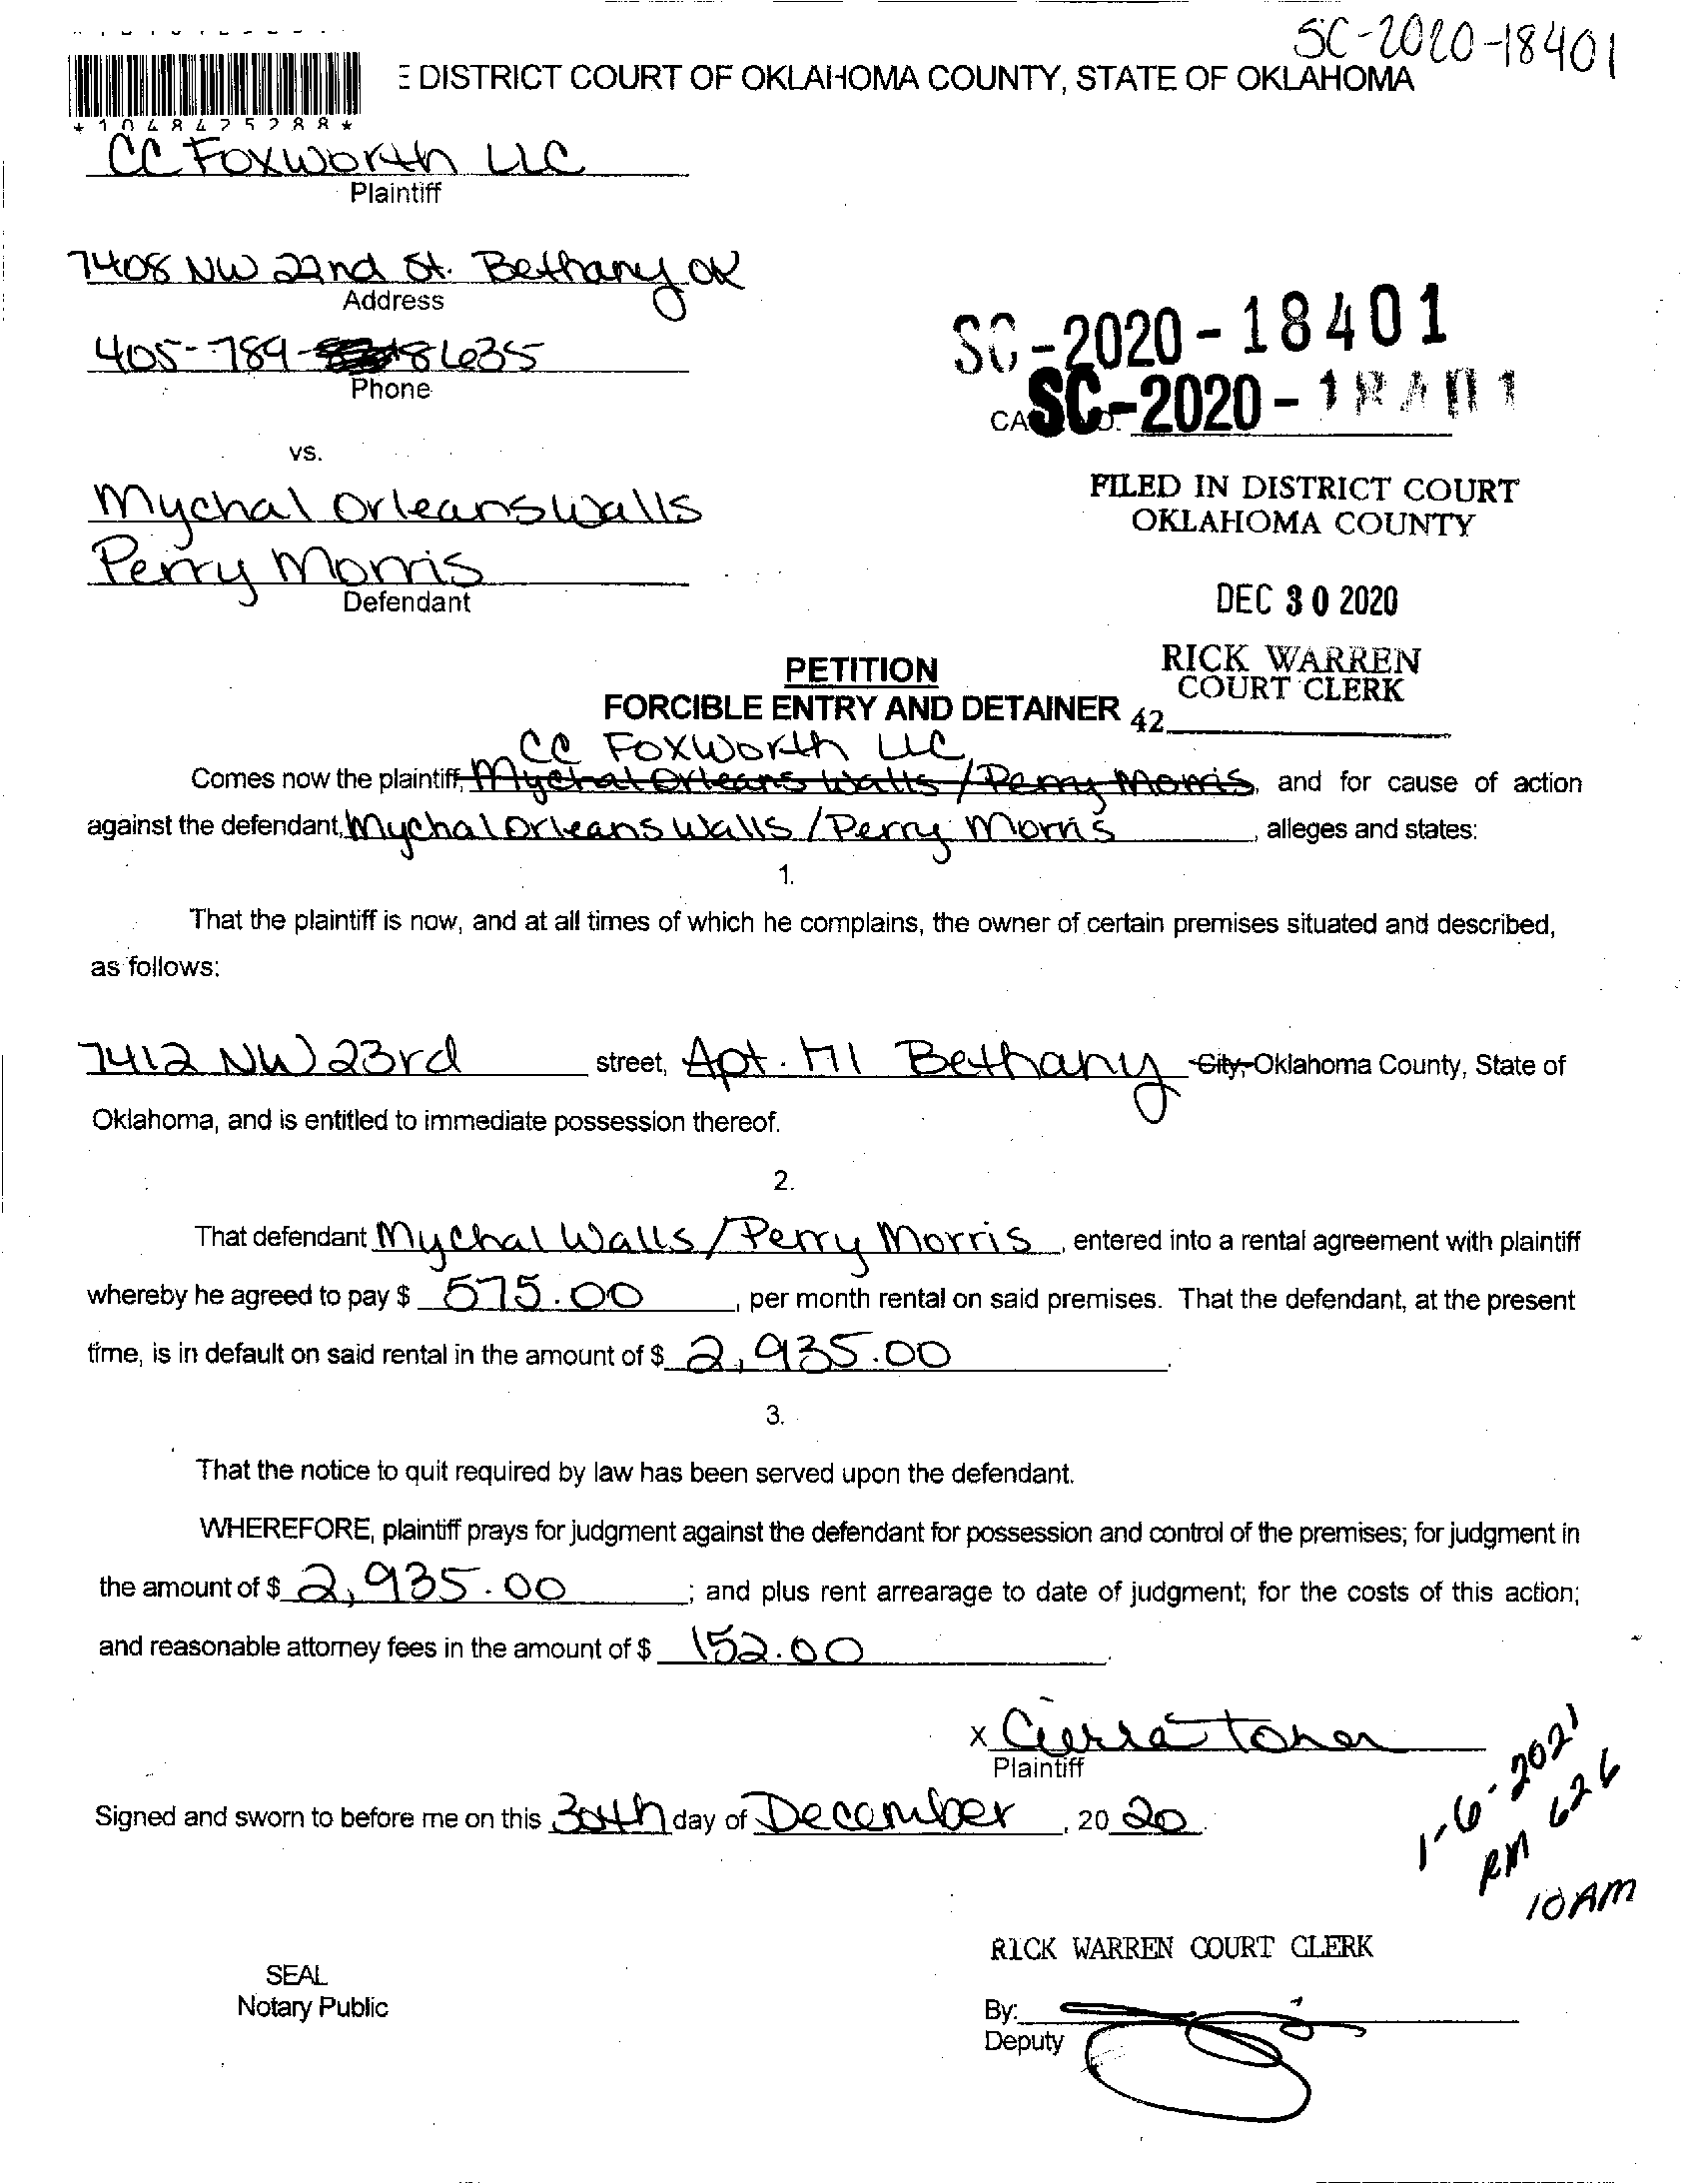 SC-2020-18401
DISTRICT COURT OF OKLAHOMA COUNTY, STATE OF OKLAHOMA
*1048425288*
CC Foxworth LLC
Plaintiff
7408 NW 22nd St. Bethany OK
Address
405-789-8635
Phone
SC-2020-18401
SC-2020-18401
vs.
Mychal Orleans Walls
Perry Morris
Defendant
FILED IN DISTRICT COURT
OKLAHOMA COUNTY
DEC 30 2020
RICK WARREN
COURT CLERK
42
PETITION
FORCIBLE ENTRY AND DETAINER
CC Foxworth LLC
Comes now the plaintiff, Mychal Orleans Walls / Perry Morris, and for cause of action
against the defendant, Mychal Orleans Walls / Perry Morris, alleges and states:
1.
That the plaintiff is now, and at all times of which he complains, the owner of certain premises situated and described,
as follows:
7412 NW 23rd street, Apt. Bethany City, Oklahoma County, State of
Oklahoma, and is entitled to immediate possession thereof.
2.
That defendant Mychal Walls / Perry Morris, entered into a rental agreement with plaintiff
whereby he agreed to pay $ 575.00, per month rental on said premises. That the defendant, at the present
time, is in default on said rental in the amount of $ 2,935.00.
3.
That the notice to quit required by law has been served upon the defendant.
WHEREFORE, plaintiff prays for judgment against the defendant for possession and control of the premises; for judgment in
the amount of $ 2,935.00; and plus rent arrearage to date of judgment; for the costs of this action;
and reasonable attorney fees in the amount of $ 152.00.
x Cierra
Plaintiff
Signed and sworn to before me on this 30th day of December, 20 20.
1-6-2021
RM 626
10 AM
RICK WARREN COURT CLERK
SEAL
Notary Public
By:
Deputy